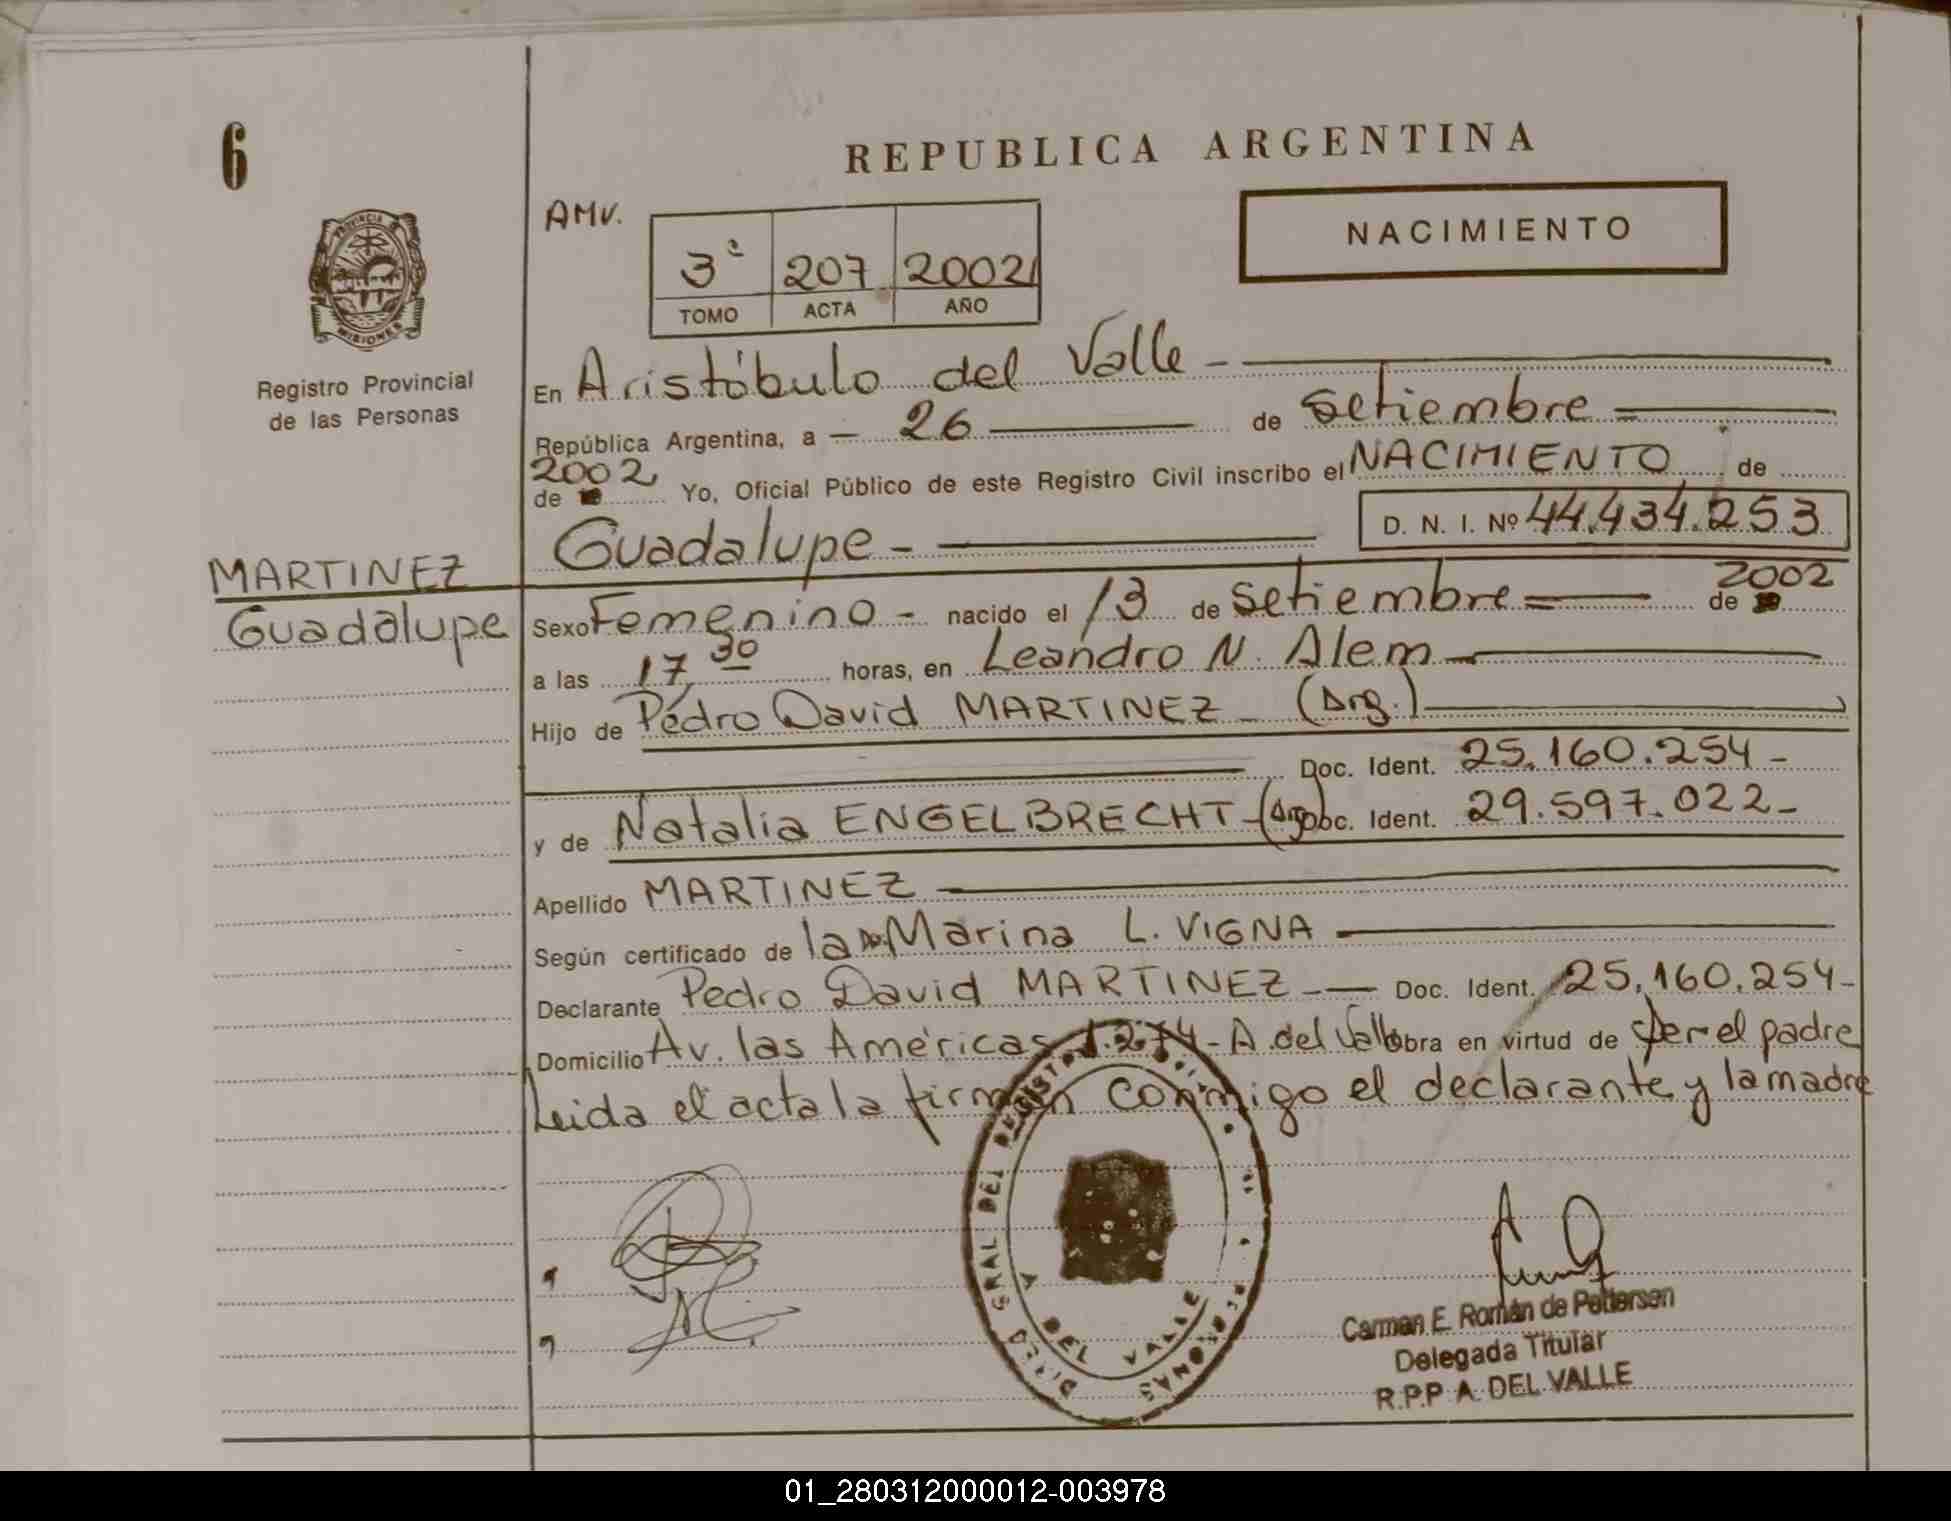 6
REPUBLICA ARGENTINA
AMV.
NACIMIENTO
3ª 207 2002
TOMO ACTA AÑO
PROVINCIA
MISIONES
Registro Provincial
de las Personas
En Aristóbulo del Valle -
República Argentina, a - 26 de setiembre
2002
de Yo, Oficial Público de este Registro Civil inscribo el NACIMIENTO de
Guadalupe - D. N. I. Nº 44.434.253
MARTINEZ
Guadalupe
Sexo Femenino - nacido el 13 de setiembre de 2002
a las 17,30 horas, en Leandro N. Alem
Hijo de Pedro David MARTINEZ (Arg.)
Doc. Ident. 25.160.254-
y de Natalia ENGELBRECHT-(Arg) Doc. Ident. 29.597.022-
Apellido MARTINEZ
Según certificado de la Dra. Marina L. VIGNA
Declarante Pedro David MARTINEZ Doc. Ident. 25.160.254-
Domicilio Av. las Américas 1.274- A.del Valle obra en virtud de ser el padre
Leida el acta la firman conmigo el declarante y la madre
DIREC. GRAL DEL REGISTRO
A DEL VALLE
Carmen E. Román de Pettersen
Delegada Titular
R.P.P A. DEL VALLE
01_280312000012-003978